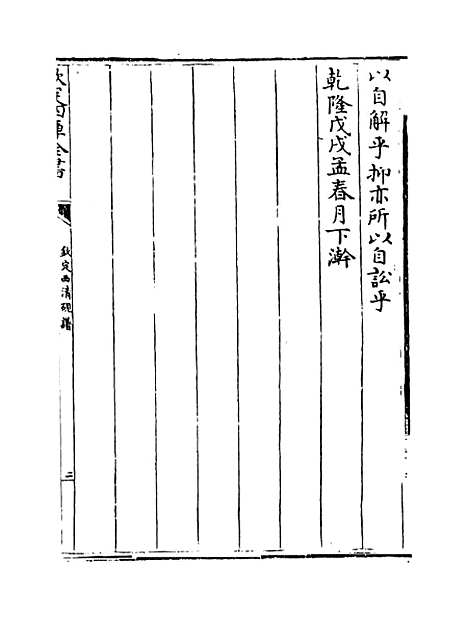 以自解乎抑亦所以自訟乎
乾隆戊戌孟春月下澣
欽定四庫全書
欽定西清硯譜
二